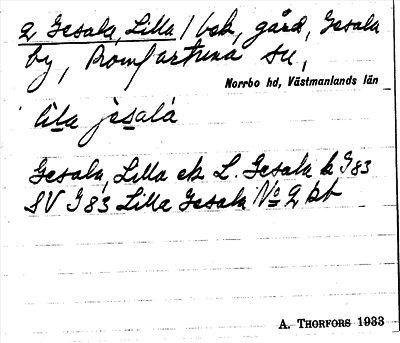 2 Gesala, Lilla / beb, gård, Gesala
by, Romfartuna sn,
Norrbo hd, Västmanlands län
lìla jèsala
Gesala, Lilla ek L. Gesala k J 83
SV J 83 Lilla Gesala No 2 kt
A. THORFORS 1933